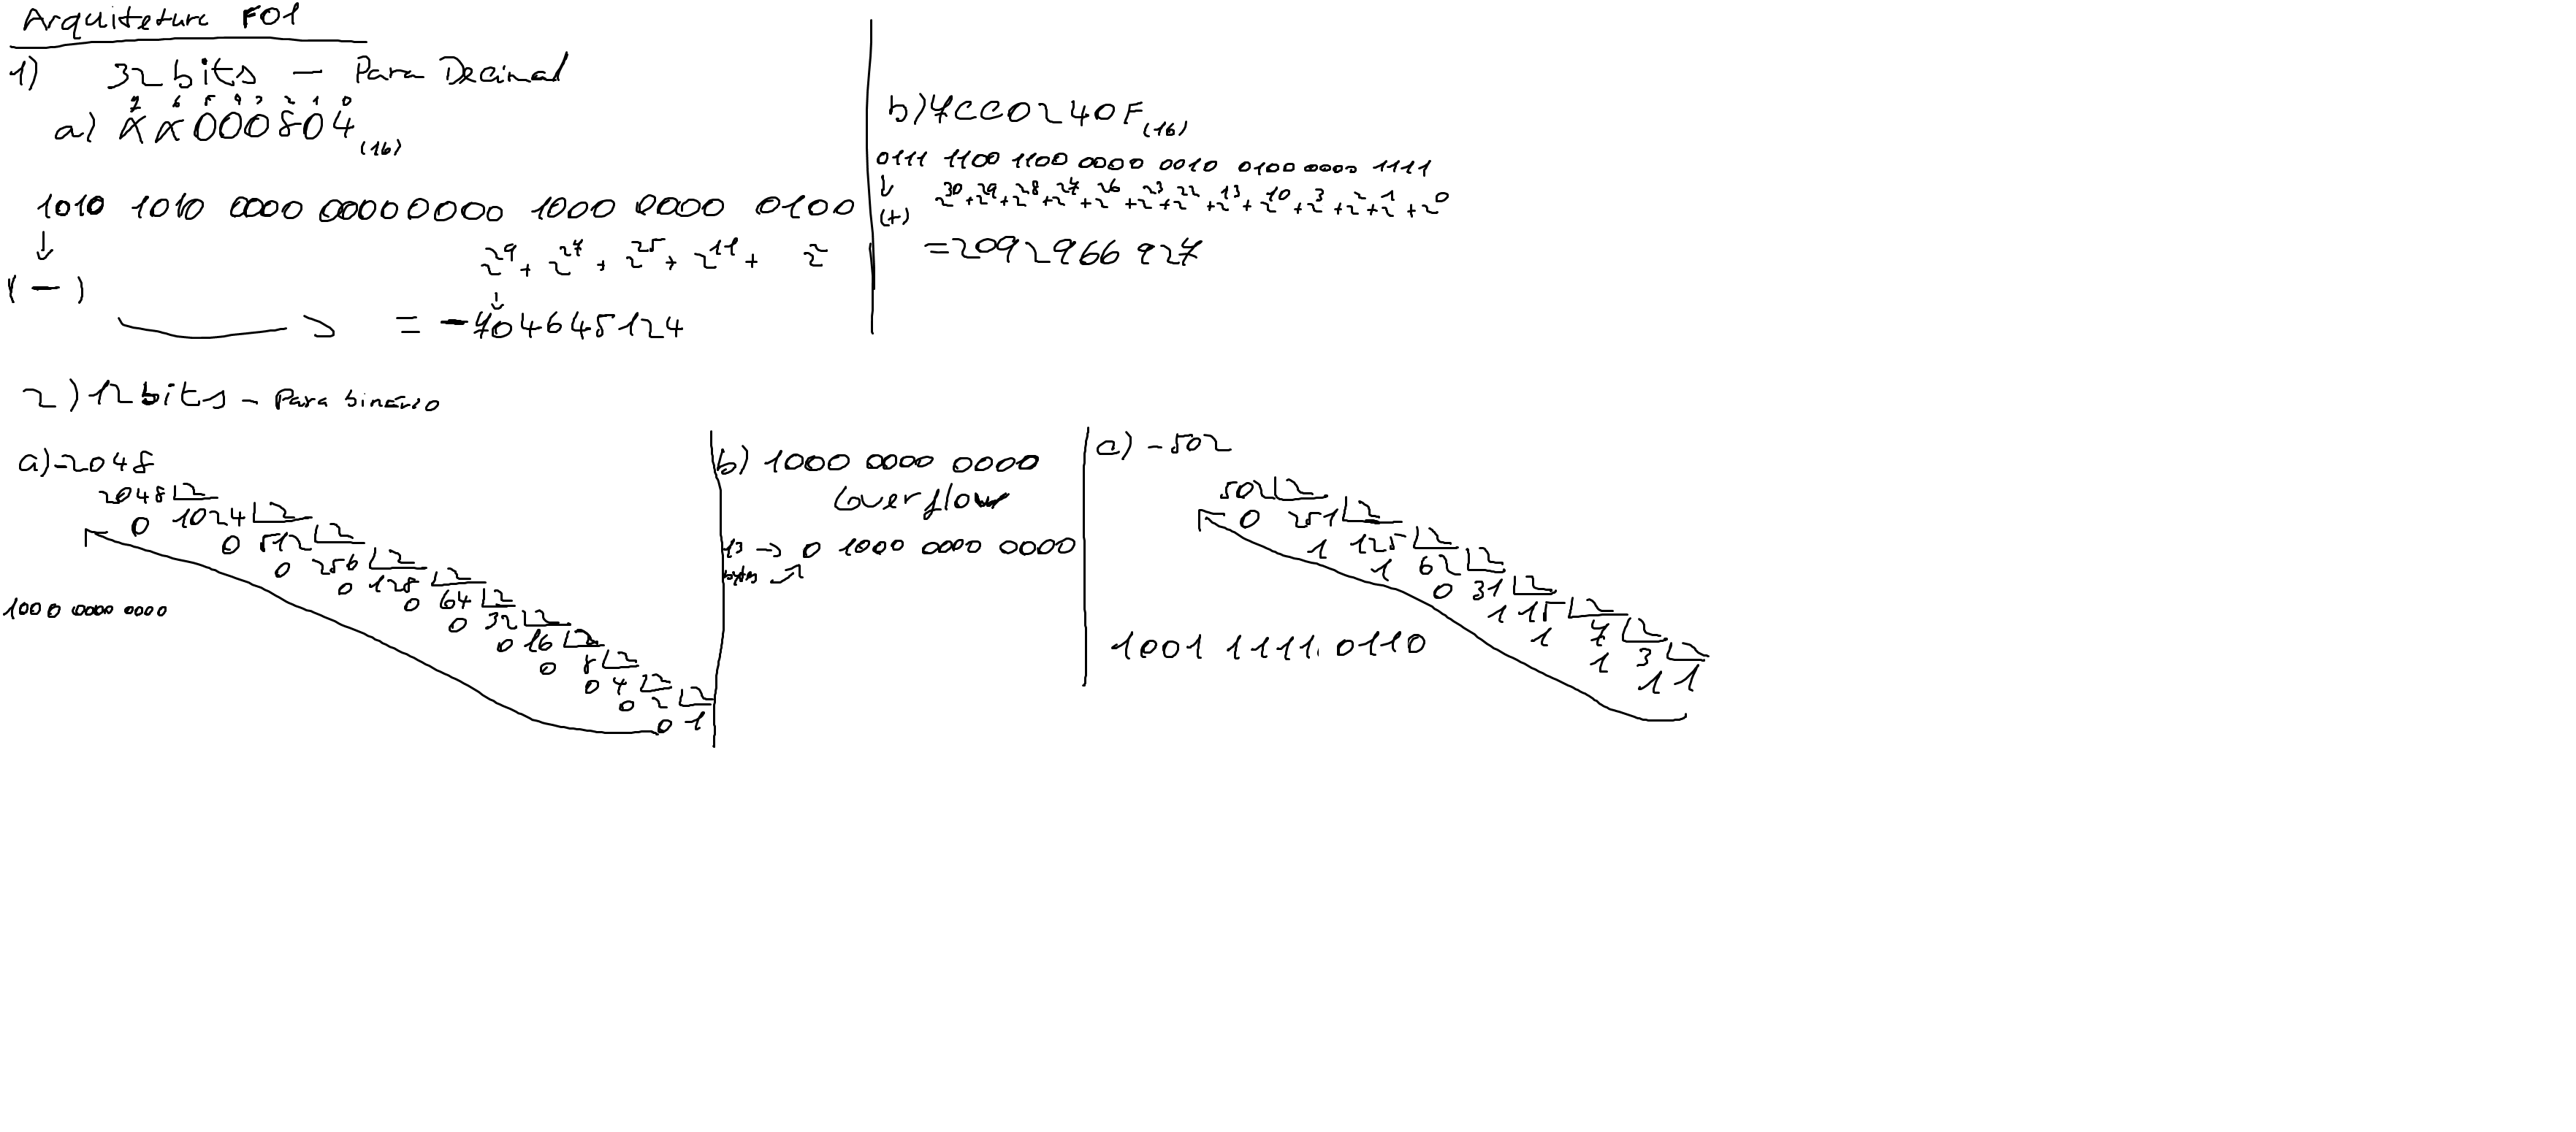 Arquitetura F01
1) 32 bits - Para Decimal
7 6 5 4 3 2 1 0
a) AA000804(16)
1010 1010 0000 0000 0000 1000 0000 0100
↓ 2^29 + 2^27 + 2^25 + 2^11 + 2^2
(-)
= -704645124
b) 7CC0240F(16)
0111 1100 1100 0000 0010 0100 0000 1111
↓ 2^30+2^29+2^28+2^27+2^26+2^23+2^22+2^13+2^10+2^3+2+2^1+2^0
(+)
=2092966927
2) 12 bits - Para binário
a) -2048
2048 2
0 1024 2
0 512 2
0 256 2
0 128 2
0 64 2
0 32 2
0 16 2
0 8 2
0 4 2
0 2 2
0 1
1000 0000 0000
b) 1000 0000 0000
Overflow
13 → 0 1000 0000 0000
bytes
c) -502
502 2
0 251 2
1 125 2
1 62 2
0 31 2
1 15 2
1 7 2
1 3 2
1 1
1001 1111. 0110